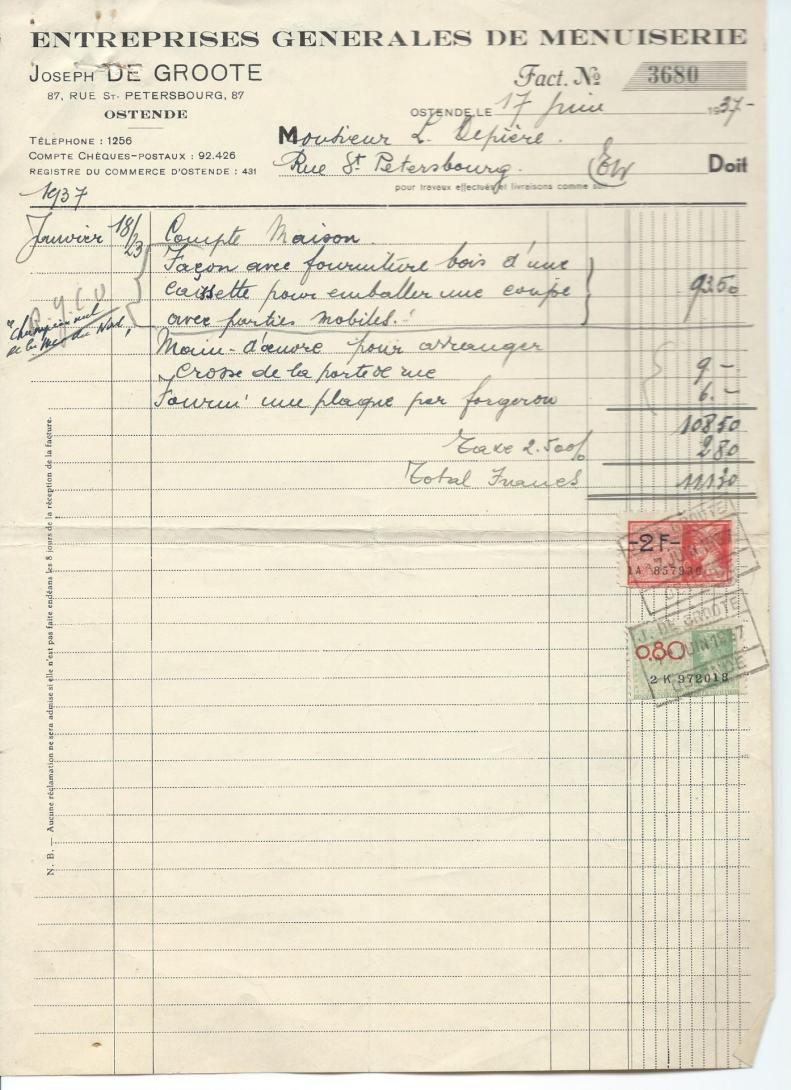 ENTREPRISES GENERALES DE MENUISERIE
JOSEPH DE GROOTE
87, RUE ST. PETERSBOURG, 87
OSTENDE
TÉLÉPHONE : 1256
COMPTE CHÈQUES-POSTAUX : 92.426
REGISTRE DU COMMERCE D'OSTENDE : 431
Fact. No 3680
OSTENDE LE 17 Juin 1937-
Monsieur L. Depière.
Rue St Petersbourg. E/W Doit
pour travaux effectués et livraisons comme suit
1937
Janvier 18/23 Compte Maison
Façon avec fourniture bois d'une
caissette pour emballer une coupe 93.50
avec parties mobiles.
"Championnat
de la Mer du Nord"
Main-d'œuvre pour arranger
crosse de la porte de rue 9.-
Fourni une plaque par forgeron 6.-
108 50
Taxe 2.50% 2 80
Total Francs 111 30
-2F-
1A 857936
J. DE GROOTE
JUIN 1937
OSTENDE
0.80
2 K 972018
N. B. — Aucune réclamation ne sera admise si elle n'est pas faite endéans les 8 jours de la réception de la facture.